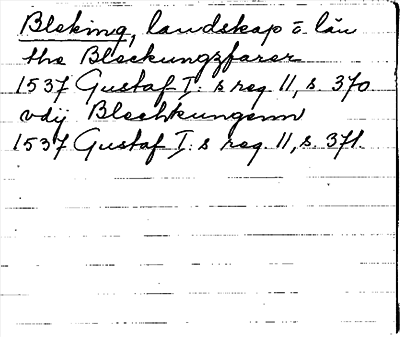 Bleking, landskap o. län
the Bleckungzfarer
1537 Gustaf I:s reg. 11, s. 370
vdij Blechkungenn
1537 Gustaf I:s reg. 11, s. 371.